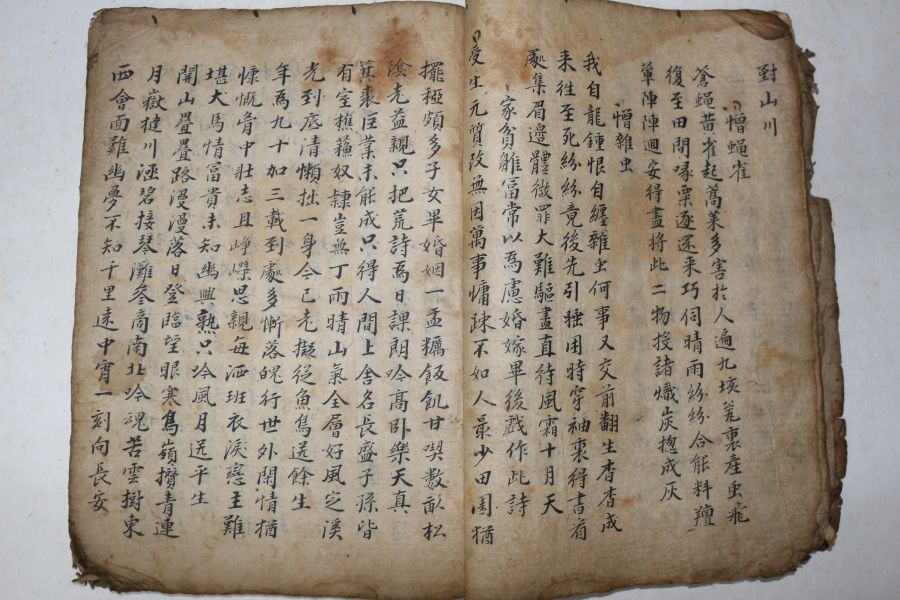 對山川
憎蝇雀
蒼蝇昔雀起蒿莱多害於人遍九垓瓮裏産虫飛
復至田間啄粟逐還来巧伺晴雨紛紛合能料羶
葷陣陣迴安得盡將此二物投諸熾炭摠成灰
憎雜虫
我自龍鍾恨自纏雜虫何事又交前翻生杳杳成
来往至死紛紛竟後先引睡用時穿袖裏得書看
處集眉邊體微罪大難驅盡直待風霜十月天
家貧雖冨常以爲慮婚嫁畢後戱作此詩
受生元質改無因萬事慵踈不如人最少田園猶
擺稏頗多子女畢婚姻一盂糲飯飢甘喫數畝松
陰老益親只把荒詩爲日課朗吟髙卧樂天真
箕裘臣業未能成只得人間上舍名長盛子孫皆
有室樵蘓奴隷豈無丁雨晴山氣全層好風定溪
光到底清懶拙一身今已老擬從魚鳥送餘生
年爲九十加三載到處多慚落魄行世外閑情猶
慷慨胷中壯志且崢嶸思親每洒班衣淚戀主難
堪犬馬情富貴未知幽興熟只吟風月送平生
開山疊疊路漫漫落日登臨望眼寒鳥嶺攢青連
月嶽㨗川涵碧接琴灘叅商南北吟魂苦雲樹東
西會面難幽夢不知千里遠中宵一刻向長安